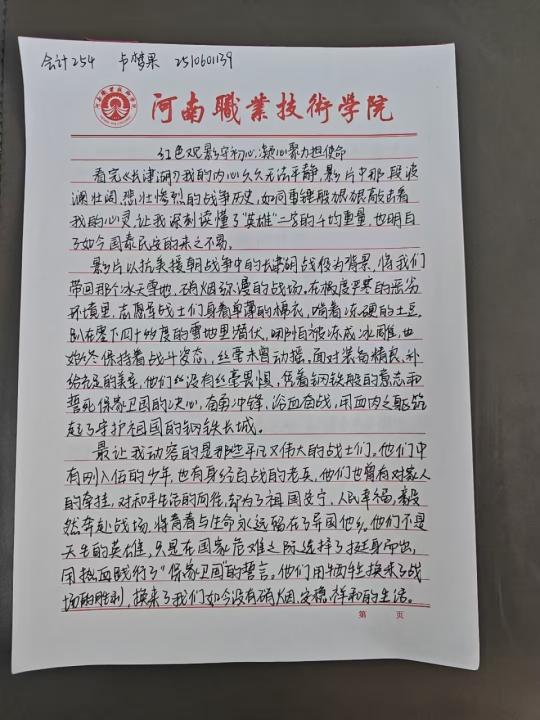 会计254 卢梦果 2510601139
河南職業技術學院
红色观影守初心,凝心聚力担使命
看完《长津湖》我的内心久久无法平静,影片中那段波
澜壮阔、悲壮惨烈的战争历史,如同重锤般狠狠敲击着
我的心灵,让我深刻读懂了“英雄”二字的千钧重量,也明白
了如今国泰民安的来之不易。
影片以抗美援朝战争中的长津湖战役为背景,将我们
带回那个冰天雪地、硝烟弥漫的战场。在极度严寒的恶劣
环境里,志愿军战士们身着单薄的棉衣,啃着冻硬的土豆,
趴在零下四十多度的雪地里潜伏,即自被冻成冰雕,也
始终保持着战斗姿态,丝毫未曾动摇。面对装备精良、补
给充足的美军,他们丝没有丝毫畏惧,凭着钢铁般的意志和
誓死保家卫国的决心,奋勇冲锋,浴血奋战,用血肉之躯筑
起了守护祖国的钢铁长城。
最让我动容的是那些平凡又伟大的战士们。他们中
有刚入伍的少年,也有身经百战的老兵,他们也曾有对家人
的牵挂,对和平生活的向往,却为了祖国安宁,人民幸福,毅
然奔赴战场,将青春与生命永远留在了异国他乡。他们不是
天生的英雄,只是在国家危难之际选择了挺身而出,
用热血践行了“保家卫国”的誓言。他们用牺牲换来了战
场的胜利,换来了我们如今没有硝烟、安稳祥和的生活。
第 页